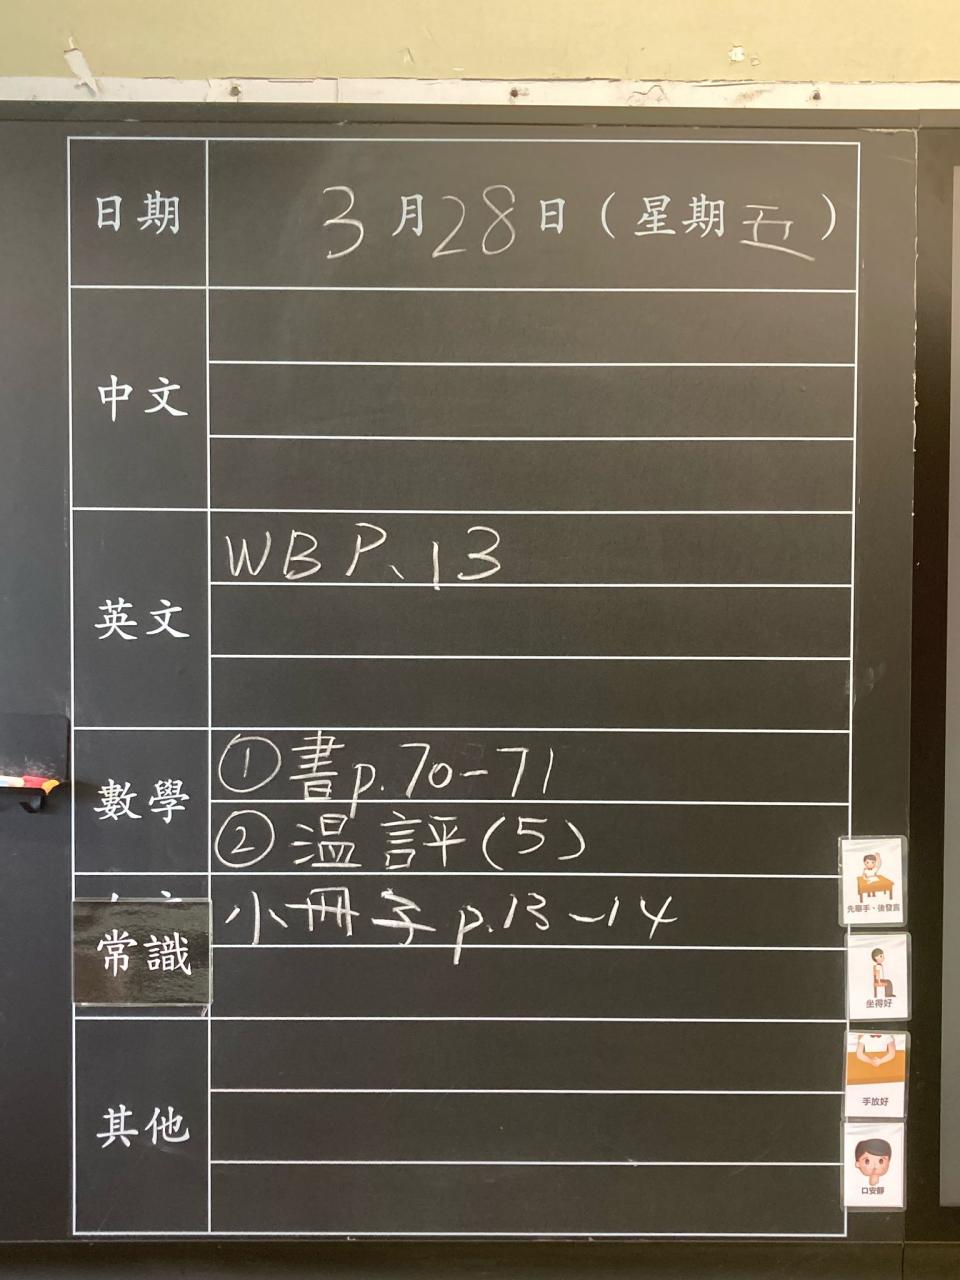 日期 3月28日（星期五）
中文
英文 WB P、13
數學 ①書p.70-71
②溫評(5)
常識 小冊子 p.13-14
其他
先舉手、後發言
坐得好
手放好
口安靜